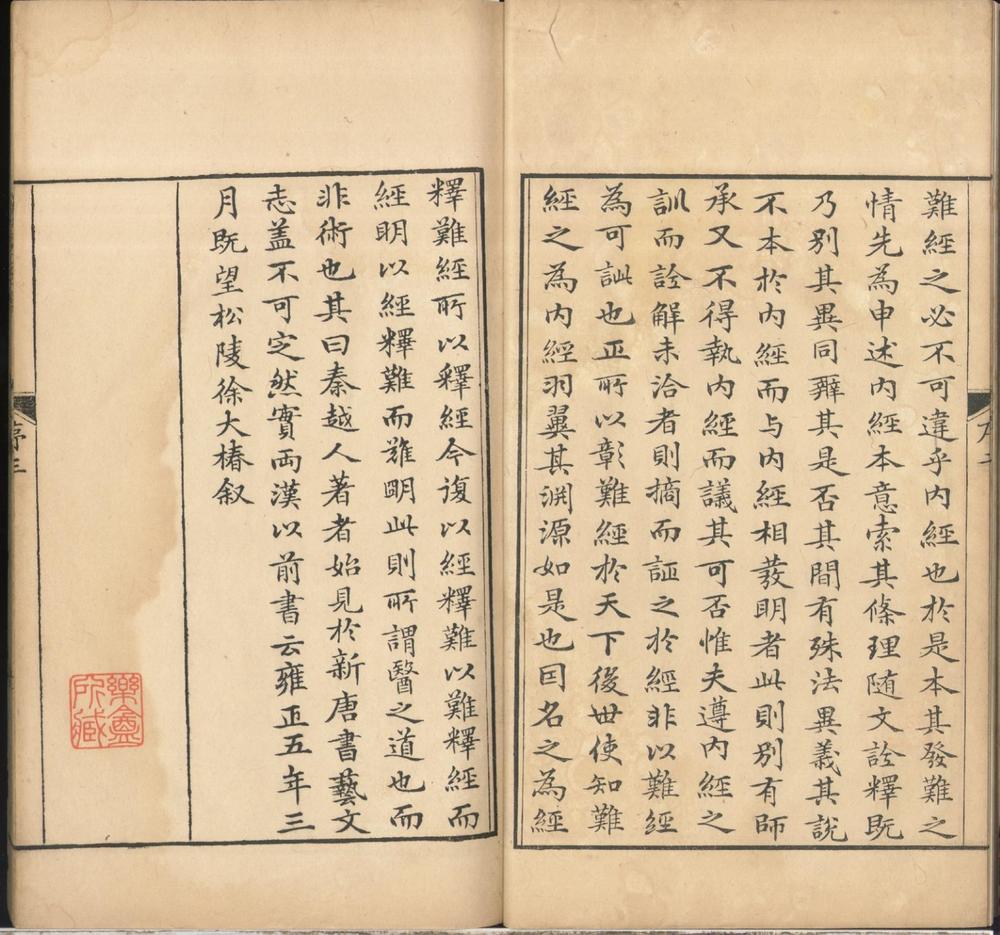 難經之必不可違乎内經也於是本其發難之
情先為申述内經本意索其條理随文詮釋既
乃別其異同辯其是否其間有殊法異義其說
不本於内經而与内經相發明者此則別有師
承又不得執内經而議其可否惟夫遵内經之
訓而詮解未洽者則摘而証之於經非以難經
為可訕也正所以彰難經於天下後世使知難
經之為内經羽翼其渊源如是也因名之為經
釋難經所以釋經今復以經釋難以難釋經而
經明以經釋難而難明此則所謂醫之道也而
非術也其曰秦越人著者始見於新唐書藝文
志盖不可定然實两漢以前書云雍正五年三
月既望松陵徐大椿叙
序三
樂盦
所藏